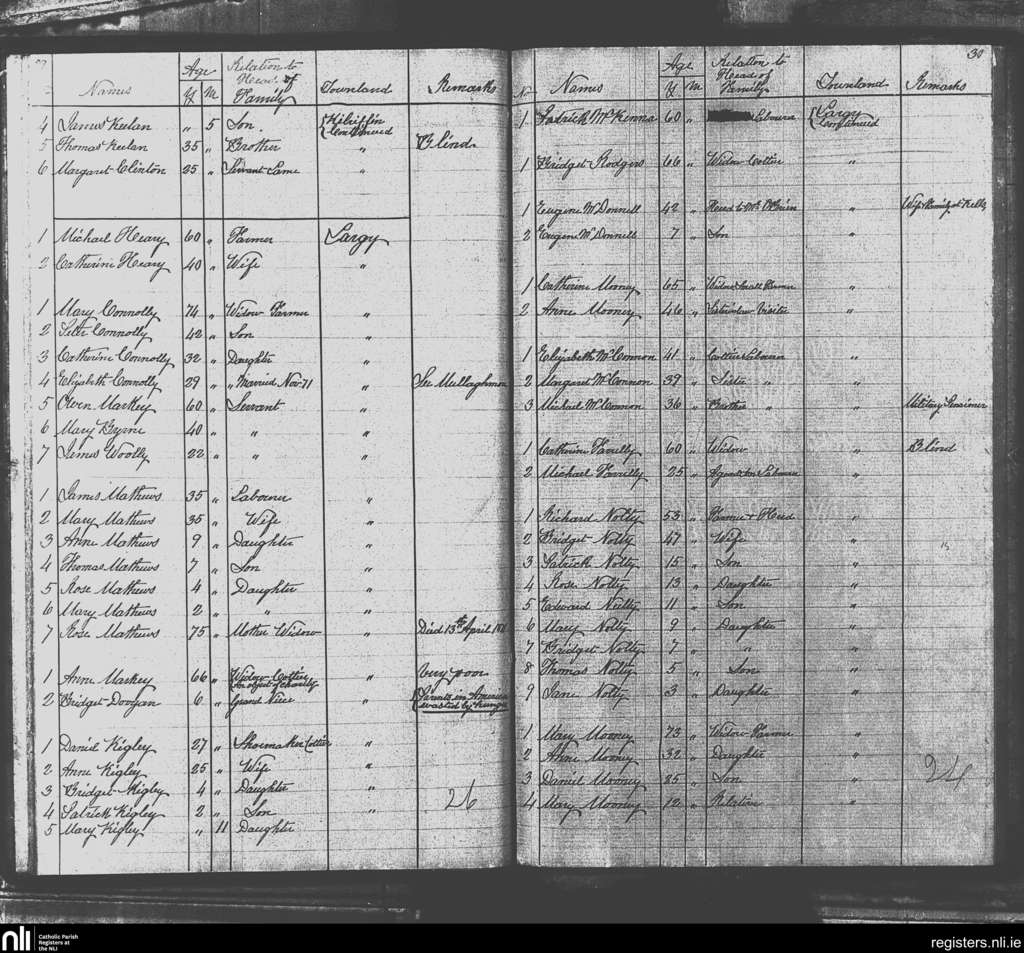 Names Age Y M Relation to Head of Family Townland Remarks
4 James Keelan " 5 Son. Continued
5 Thomas Keelan 35 " Brother " Blind
6 Margaret Clinton 25 " Servant Lame "
1 Michael Heary 60 " Farmer Largy
2 Catherine Heary 40 " Wife "
1 Mary Connolly 74 " Widow Farmer "
2 Peter Connolly 42 " Son "
3 Catherine Connolly 32 " Daughter "
4 Elizabeth Connolly 29 " " Married Nov 71 " In Mullaghmon
5 Owen Markey 60 " Servant "
6 Mary Byrne 40 " " "
7 James Woolly 22 " " "
1 James Mathews 35 " Labourer "
2 Mary Mathews 35 " Wife "
3 Anne Mathews 9 " Daughter "
4 Thomas Mathews 7 " Son "
5 Rose Mathews 4 " Daughter "
6 Mary Mathews 2 " " "
7 Rose Mathews 75 " Mother Widow " Died 13th April
1 Anne Markey 66 " Widow Cottier An object of charity " Very poor
2 Bridget Doogan 6 " Grand Niece " Parents in America wasted by hunger
1 Daniel Kigley 27 " Shoemaker Cottier "
2 Anne Kigley 25 " Wife "
3 Bridget Kigley 4 " Daughter "
4 Patrick Kigley 2 " Son "
5 Mary Kigley " 11 Daughter
26
30
No Names Age Y M Relation to Head of Family Townland Remarks
1 Patrick McKenna 60 " Labourer Largy Continued
1 Bridget Rodgers 66 " Widow Cottier "
1 Eugene McDonnell 42 " Herd to Mr O'Brien " Wife & family at Kells
2 Eugene McDonnell 7 " Son "
1 Catherine Mooney 65 " Widow Small Farmer "
2 Anne Mooney 46 " Sister in law Visitor "
1 Elizabeth McConnon 41 " Cottier Labourer "
2 Margaret McConnon 39 " Sister " "
3 Michael McConnon 36 " Brother " " Military Pensioner
1 Catherine Farrelly 60 " Widow " Blind
2 Michael Farrelly 25 " Labourer "
1 Richard Nolty 53 " Farmer & Herd "
2 Bridget Nolty 47 " Wife "
3 Patrick Nolty 15 " Son "
4 Rose Nolty 13 " Daughter "
5 Edward Nulty 11 " Son "
6 Mary Nolty 9 " Daughter "
7 Bridget Nolty 7 " " "
8 Thomas Nolty 5 " Son "
9 Jane Nolty 3 " Daughter "
1 Mary Mooney 73 " Widow Farmer "
2 Anne Mooney 32 " Daughter "
3 Daniel Mooney 35 " Son "
4 Mary Mooney 12 " Relative "
24
nli Catholic Parish Registers at the NLI
registers.nli.ie